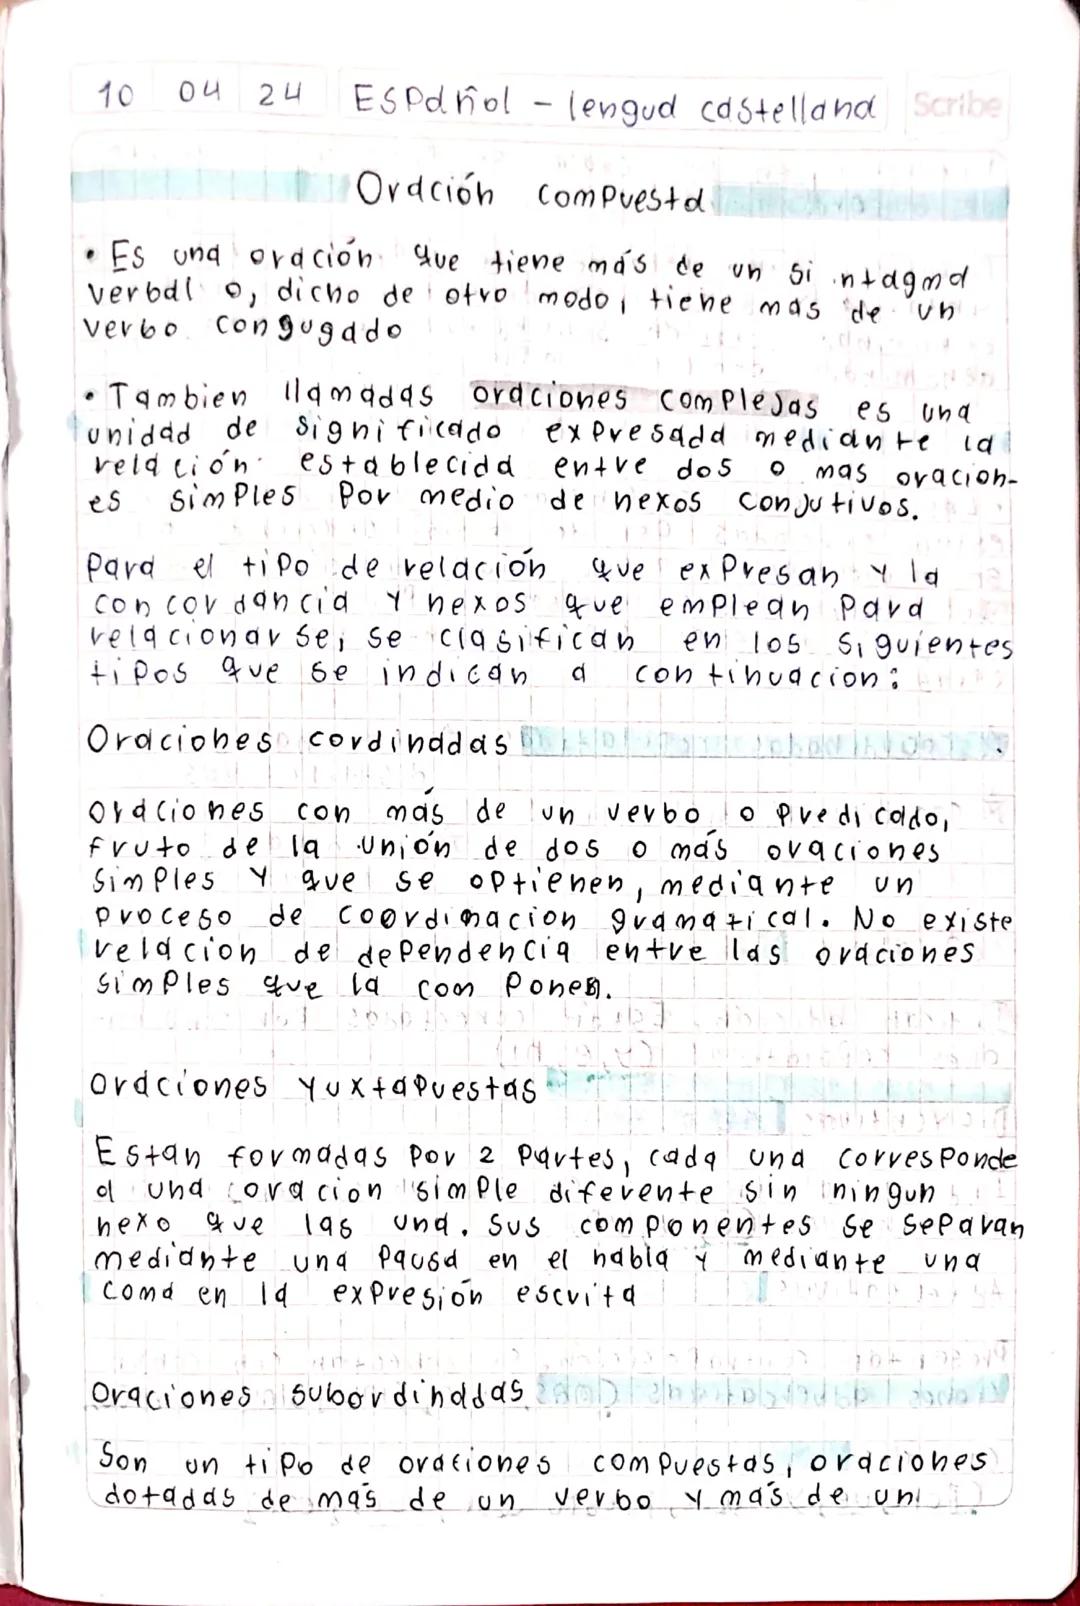 10 04 24 Español - lengua castellana Scribe
Oración compuesta
• Es una oración que tiene más de un sintagma
verbal o, dicho de otro modo, tiene mas de un
verbo congugado
• Tambien llamadas oraciones complejas es una
unidad de significado expresada mediante la
relación establecida entre dos o mas oracion-
es simples por medio de nexos conjutivos.
Para el tipo de relación que expresan y la
concordancia y nexos que emplean para
relacionarse, se clasifican en los siguientes
tipos que se indican a continuacion:
Oraciones cordinadas
oraciones con más de un verbo o predicado,
fruto de la unión de dos o más oraciones
simples y que se optienen, mediante un
proceso de coordinacion gramatical. No existe
relacion de dependencia entre las oraciones
simples que la componen.
oraciones yuxtapuestas
Estan formadas por 2 partes, cada una corresponde
a una oracion simple diferente sin ningun
nexo que las una. Sus componentes se separan
mediante una pausa en el habla y mediante una
coma en la expresión escrita
oraciones subordinadas
Son un tipo de oraciones compuestas, oraciones
dotadas de más de un verbo y más de un